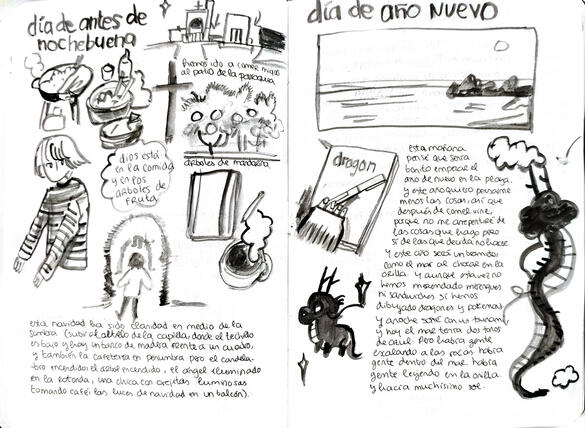 día de antes de
nochebuena
hemos ido a comer migas
al patio de la parroquia
árboles de mandarina
dios está
en la comida
y en los
árboles de
fruta
esta navidad ha sido claridad en medio de la
sombra (subir al altillo de la capilla, donde el techillo
es bajo y hay un banco de madera frente a un cuadro,
y también la cafetería en penumbra pero el candela-
bro encendido, el árbol encendido, el ángel iluminado
en la rotonda, una chica con orejitas luminosas
tomando café. las luces de navidad en un balcón).
día de año nuevo
dragon
esta mañana
pensé que sería
bonito empezar el
año de nuevo en la playa.
y este año quiero pensarme
menos las cosas, así que
después de comer vine,
porque no me arrepentiré de
las cosas que hago pero
sí de las que decida no hacer.
Y este año será un bramido
como el mar al chocar en la
orilla. Y aunque esta vez no
hemos merendado merengues
ni sandwiches sí hemos
dibujado dragones y poemas
Y anoche soñé con un tsunami
y hoy el mar tenía dos tonos
de azul. Pero había gente
escalando a las rocas. había
gente dentro del mar. había
gente leyendo en la orilla.
y hacía muchísimo sol.